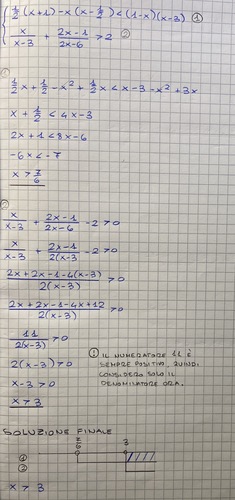 1/2 (x+1) - x (x - 1/2) < (1-x)(x-3) ①
x/(x-3) + (2x-1)/(2x-6) > 2 ②
①
1/2 x + 1/2 - x² + 1/2 x < x - 3 - x² + 3x
x + 1/2 < 4x - 3
2x + 1 < 8x - 6
-6x < -7
x > 7/6
②
x/(x-3) + (2x-1)/(2x-6) - 2 > 0
x/(x-3) + (2x-1)/(2(x-3) - 2 > 0
(2x + 2x - 1 - 4(x-3))/(2(x-3)) > 0
(2x + 2x - 1 - 4x + 12)/(2(x-3)) > 0
11/(2(x-3)) > 0
! IL NUMERATORE 11 È
SEMPRE POSITIVO, QUINDI
CONSIDERO SOLO IL
DENOMINATORE ORA.
2(x-3) > 0
x - 3 > 0
x > 3
SOLUZIONE FINALE
7/6 3
①
②
x > 3